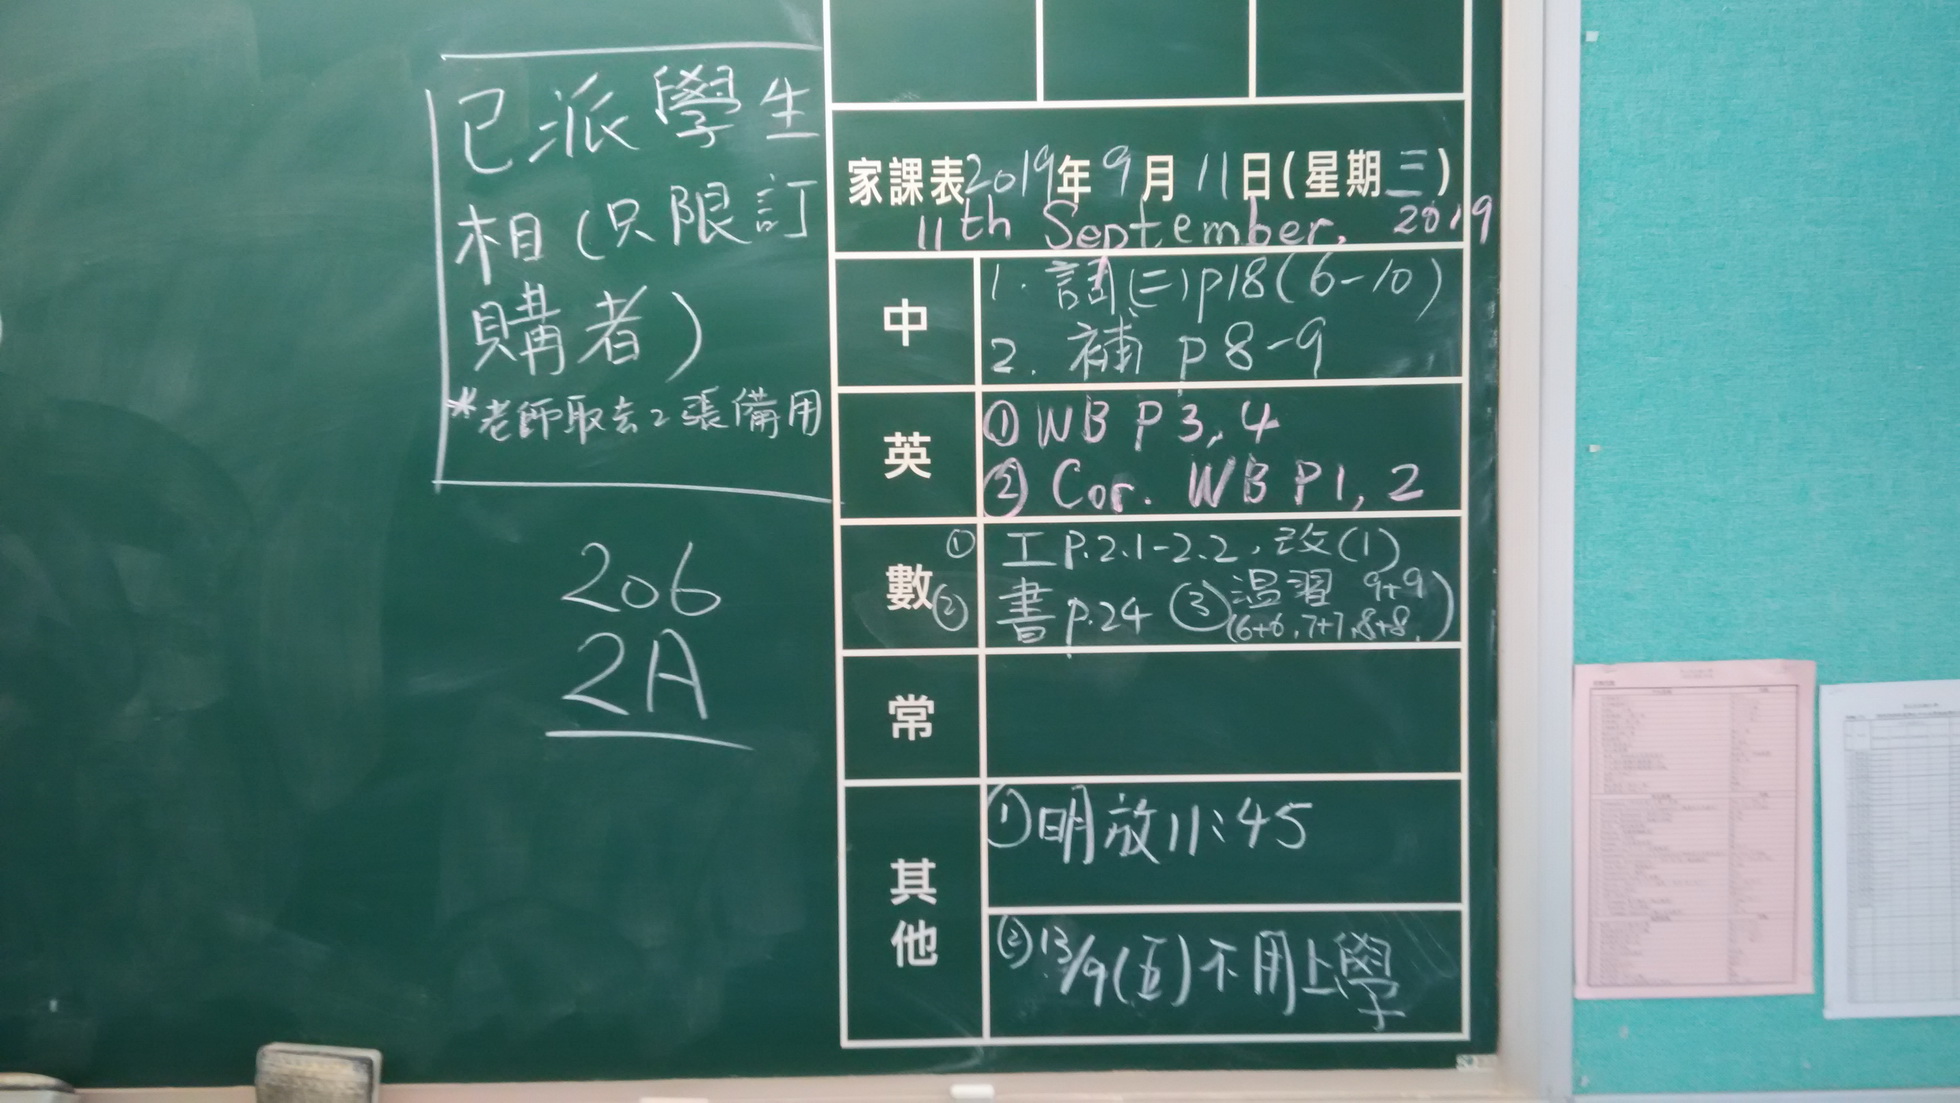 已派學生
相(只限訂
購者)
*老師取去2張備用
206
2A
家課表2019年9月11日(星期三)
11th September. 2019
中
1. 詞(二)p18(6-10)
2. 補 p8-9
英
① WB P3, 4
② Cor. WB P1, 2
數
① 工p.2.1-2.2,改(1)
② 書p.24 ③温習 9+9
(6+6,7+7,8+8,)
常
其他
①明放11:45
②13/9(五)不用上學